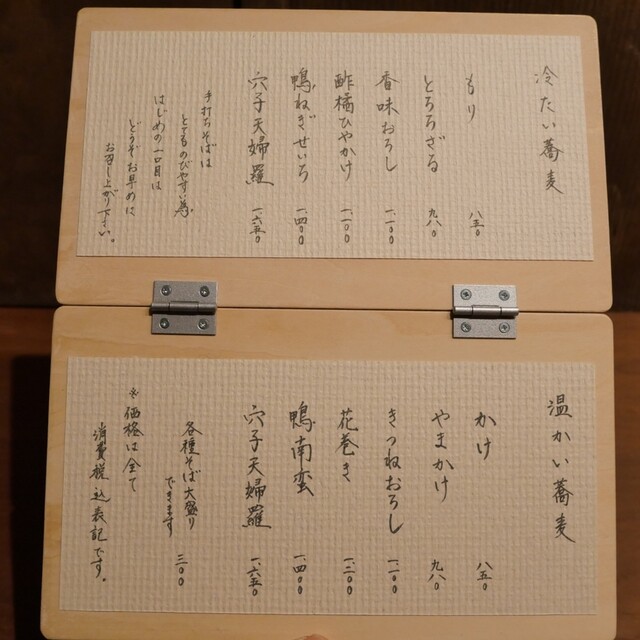 冷たい蕎麦
もり 八五〇
とろろざる 九八〇
香味おろし 一、一〇〇
酢橘ひやかけ 一、一〇〇
鴨ねぎせいろ 一、四〇〇
穴子天婦羅 一、六五〇
手打ちそばは
とてものびやすい為、
はじめの一口目は
どうぞお早めに
お召し上がり下さい。
温かい蕎麦
かけ 八五〇
やまかけ 九八〇
きつねおろし 一、一〇〇
花巻き 一、二〇〇
鴨南蛮 一、四〇〇
穴子天婦羅 一、六五〇
各種そば大盛り
できます 三〇〇
※価格は全て
消費税込表記です。